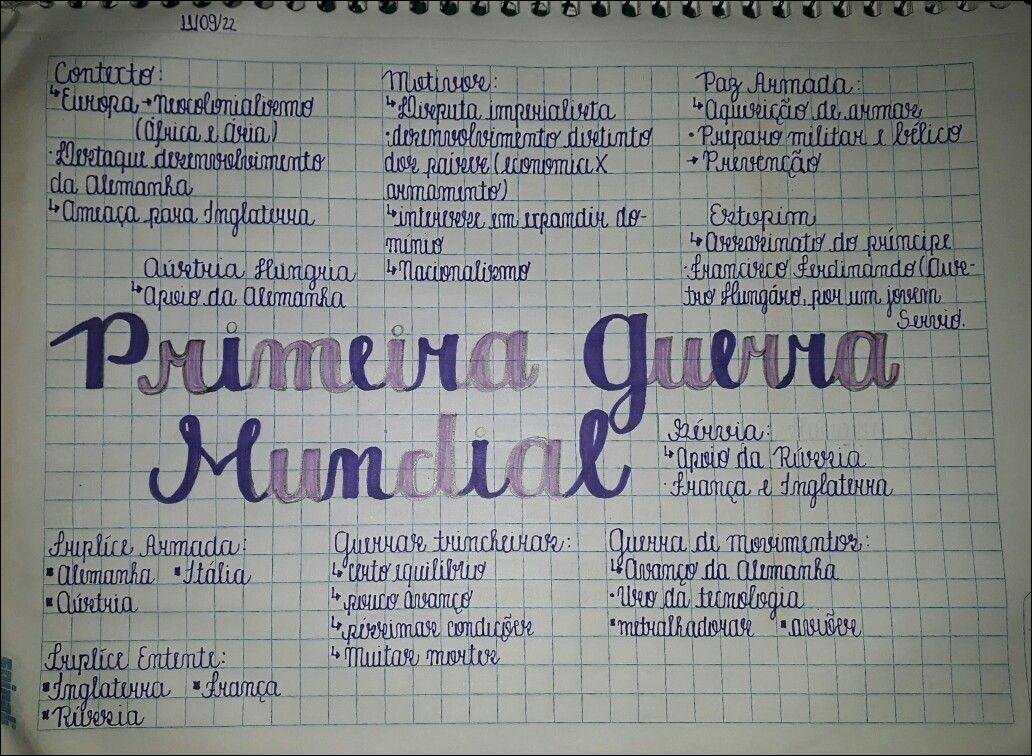 11/09/22
Contexto:
↳Europa → Neocolonialismo
(África e Ásia)
·Destaque desenvolvimento
da Alemanha
↳Ameaça para Inglaterra
Aústria Hungria
↳Apoio da Alemanha
Motivos:
↳Disputa imperialista
·desenvolvimento distinto
dos países (economia X
armamento)
↳interesse em expandir do-
mínio
↳Nacionalismo
Paz Armada:
↳Aquisição de armas
·Préparo militar e bélico
→ Prevenção
Estopim
↳Assasinato do príncipe
·Francisco Ferdinando (Aus-
tro Hungáro, por um jovem
Servio.
Primeira Guerra
Mundial
Sérvia:
↳Apoio da Rússia
·França e Inglaterra
Triplíce Armada:
▪Alemanha ▪Itália
▪Aústria
Triplíce Entente:
▪Inglaterra ▪França
▪Rússia
Guerras trincheiras:
↳certo equilíbrio
↳pouco avanço
↳péssimas condições
↳Muitas mortes
Guerra de movimentos:
↳Avanço da Alemanha
·Uso da tecnologia
▪metralhadoras ▪aviões